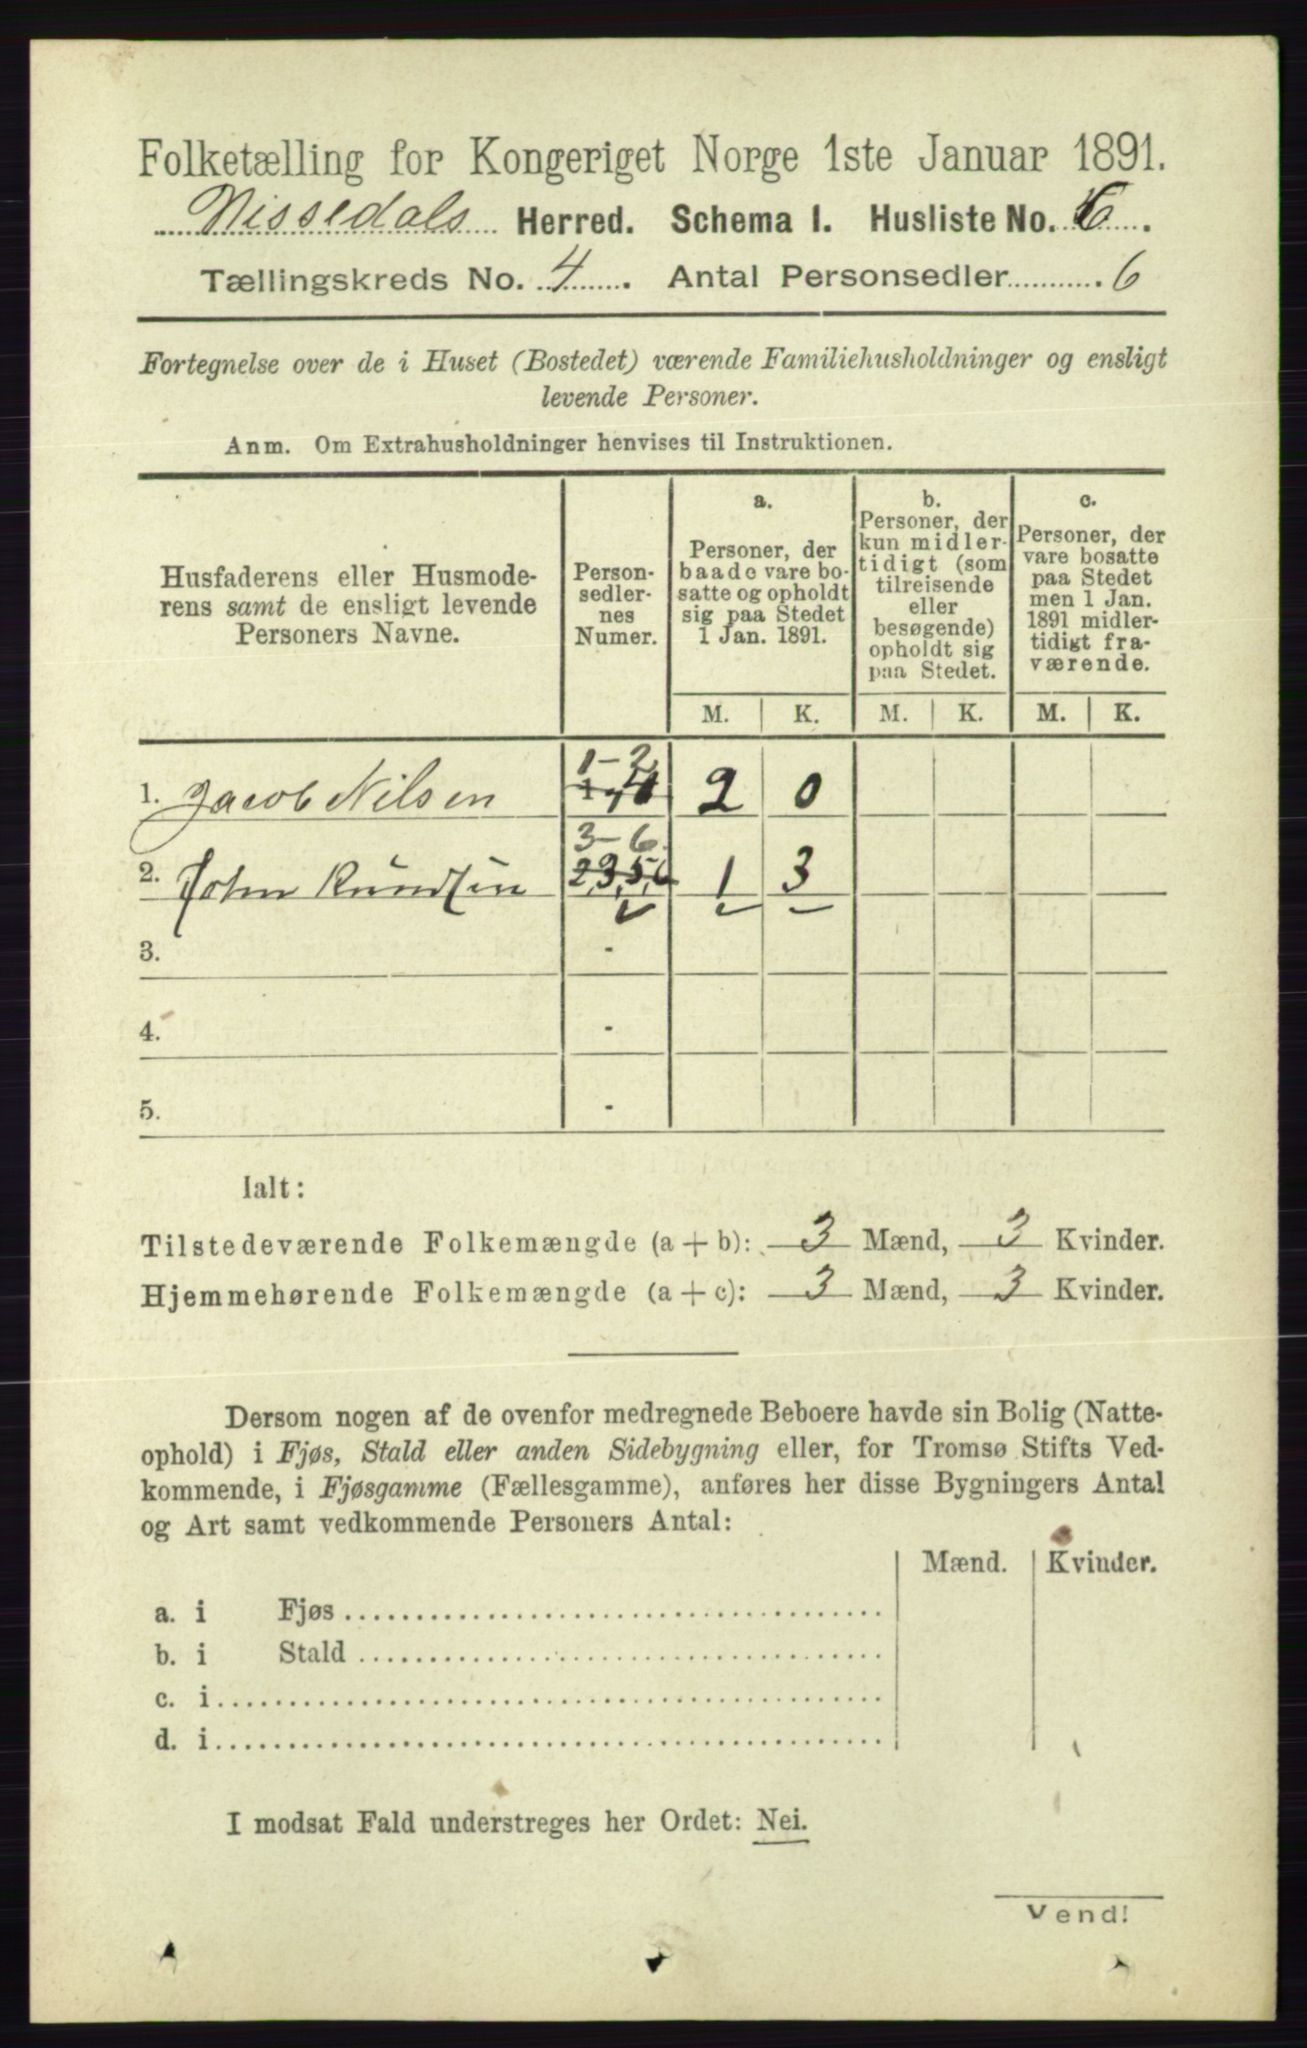 Folketælling for Kongeriget Norge 1ste Januar 1891.
Nissedals Herred. Schema I. Husliste No. 6.
Tællingskreds No. 4. Antal Personsedler 6
Fortegnelse over de i Huset (Bostedet) værende Familiehusholdninger og ensligt
levende Personer.
Anm. Om Extrahusholdninger henvises til Instruktionen.
Husfaderens eller Husmode-
rens samt de ensligt levende
Personers Navne.
Person-
sedler-
nes
Numer.
a.
Personer, der
baade vare bo-
satte og opholdt
sig paa Stedet
1 Jan. 1891.
b.
Personer, der
kun midler-
tidigt (som
tilreisende
eller
besøgende)
opholdt sig
paa Stedet.
c.
Personer, der
vare bosatte
paa Stedet
men 1 Jan.
1891 midler-
tidigt fra-
værende.
M. K. M. K. M. K.
1. Jacob Nilsen 1-2 1,4 2 0
2. John Knudsen 3-6 2,3,5,6 1 3
3. -
4. -
5. -
Ialt:
Tilstedeværende Folkemængde (a + b): 3 Mænd, 3 Kvinder.
Hjemmehørende Folkemængde (a + c): 3 Mænd, 3 Kvinder.
Dersom nogen af de ovenfor medregnede Beboere havde sin Bolig (Natte-
ophold) i Fjøs, Stald eller anden Sidebygning eller, for Tromsø Stifts Ved-
kommende, i Fjøsgamme (Fællesgamme), anføres her disse Bygningers Antal
og Art samt vedkommende Personers Antal:
Mænd. Kvinder.
a. i Fjøs
b. i Stald
c. i
d. i
I modsat Fald understreges her Ordet: Nei.
Vend!